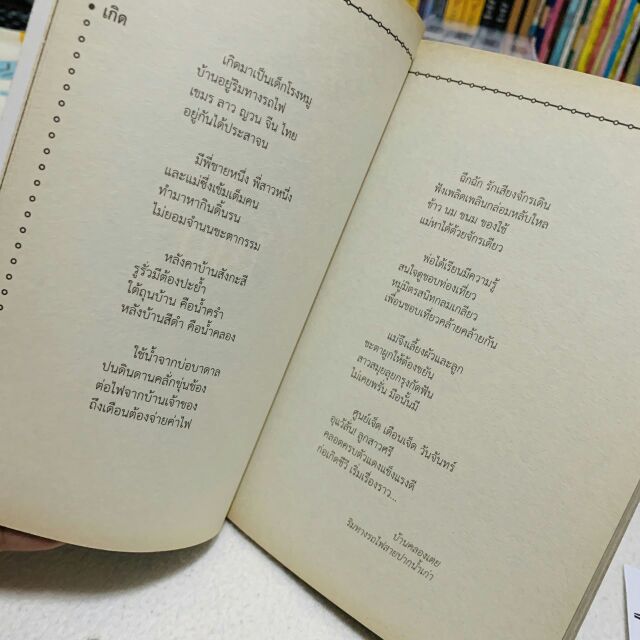 เกิด
เกิดมาเป็นเด็กโรงหมู
บ้านอยู่ริมทางรถไฟ
เขมร ลาว ญวน จีน ไทย
อยู่กันได้ประสาจน
มีพี่ชายหนึ่ง พี่สาวหนึ่ง
และแม่ซึ่งเข้มเต็มคน
ทำมาหากินดิ้นรน
ไม่ยอมจำนนชะตากรรม
หลังคาบ้านสังกะสี
รูรั่วมีต้องปะย้ำ
ใต้ถุนบ้าน คือน้ำครำ
หลังบ้านสีดำ คือน้ำคลอง
ใช้น้ำจากบ่อบาดาล
ปนดินดานคลั่กขุ่นข้อง
ต่อไฟจากบ้านเจ้าของ
ถึงเดือนต้องจ่ายค่าไฟ
ฉึกฉัก รักเสียงจักรเดิน
ฟังเพลิดเพลินกล่อมหลับไหล
ข้าว นม ขนม ของใช้
แม่หาได้ด้วยจักรเดียว
พ่อได้เรียนมีความรู้
สนใจดูชอบท่องเที่ยว
หมู่มิตรสนิทกลมเกลียว
เพื่อนชอบเที่ยวคล้ายคล้ายกัน
แม่จึงเลี้ยงผัวและลูก
ชะตาผูกให้ต้องขยัน
สาวสมุยลุยกรุงกัดฟัน
ไม่เคยพรั่น มือนั้นมี
ศูนย์เจ็ด เดือนเจ็ด วันจันทร์
อุแว้ลั่น ลูกสาวศรี
คลอดครบตัวแดงแข็งแรงดี
ก่อเกิดชีวี เริ่มเรื่องราว...
บ้านคลองเตย
ริมทางรถไฟสายปากน้ำเก่า